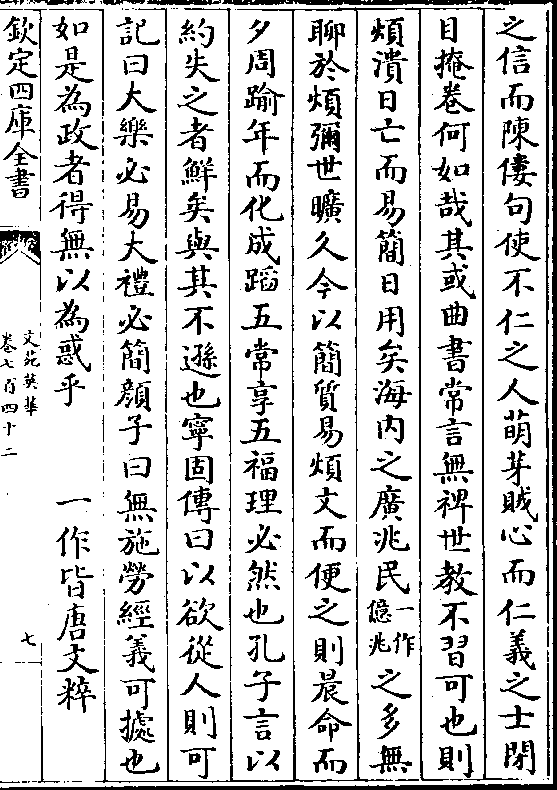 之信而陳僂句使不仁之人萌芽賊心而仁義之士閉
目掩卷何如哉其或曲書常言無裨世教不習可也則
煩瀆日亡而易簡日用矣海内之廣兆民一作億兆之多無
聊於煩彌世曠久今以簡質易煩文而便之則晨命而
夕周踰年而化成蹈五常享五福理必然也孔子言以
約失之者鮮矣與其不遜也寧固傳曰以欲從人則可
記曰大樂必易大禮必簡顔子曰無施勞經義可據也
如是為政者得無以為惑乎　一作皆唐文粹
欽定四庫全書
文苑英華
卷七百四十二
七